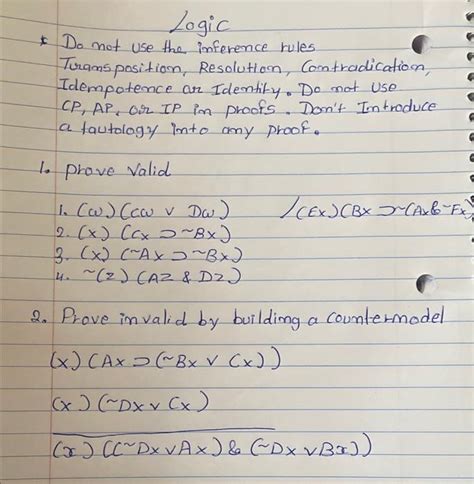 Logic
* Do not use the inference rules
Transposition, Resolution, Contradication,
Idempotence or Identity. Do not use
CP, AP, or IP in proofs. Don't Introduce
a tautology into any proof.
1. prove valid
1. (w)(Cw ∨ Dw) /(Ex)(Bx ⊃ ~(Ax & ~Fx)
2. (x)(Cx ⊃ ~Bx)
3. (x)(~Ax ⊃ ~Bx)
4. ~(z)(Az & Dz)
2. Prove invalid by building a countermodel
(x)(Ax ⊃ (~Bx ∨ Cx))
(x)(~Dx ∨ Cx)
(x)((~Dx ∨ Ax) & (~Dx ∨ Bx))